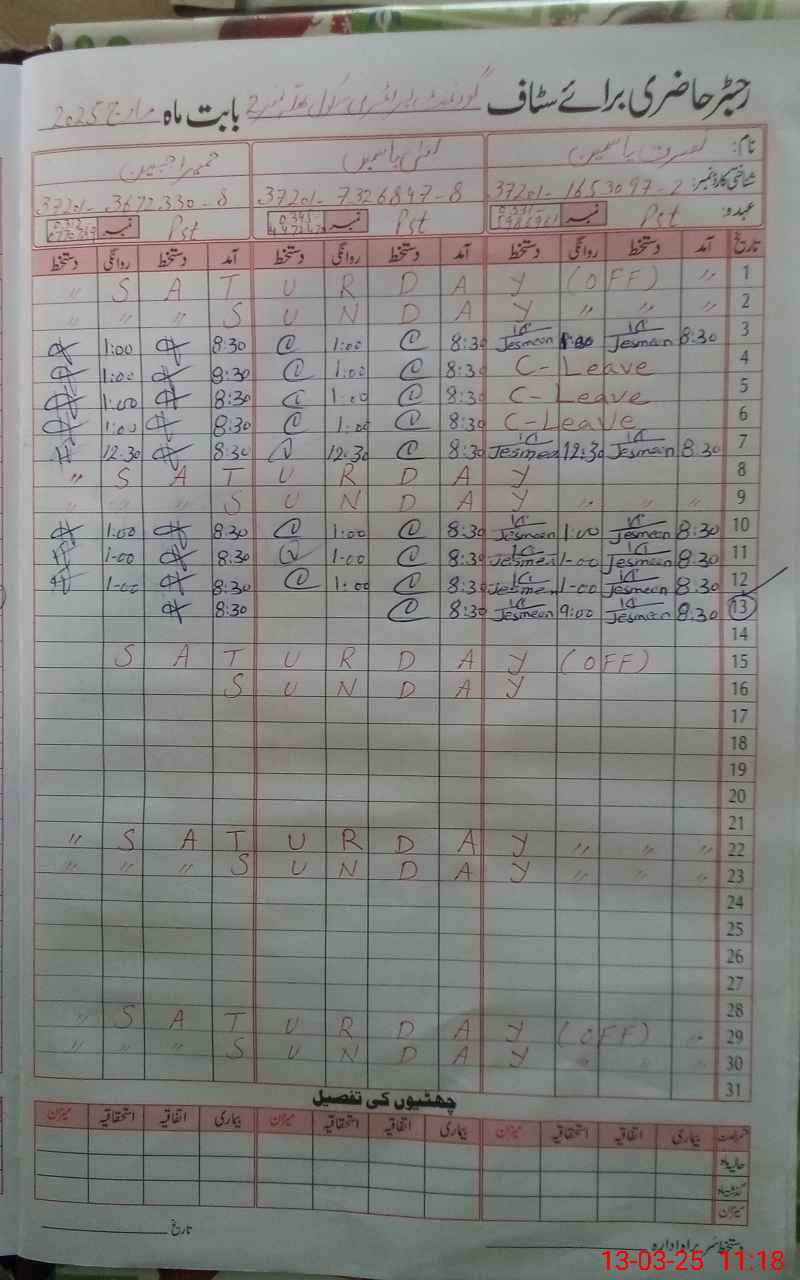 رجسٹر حاضری برائے سٹاف گورنمنٹ سکول بابت ماہ مارچ 2025
نام: یاسمین یاسمین
شناختی کارڈ نمبر: 37201-1653097-2 37201-7326847-8 37201-3672330-8
عہدہ: Pst نمبر Pst نمبر Pst نمبر
تاریخ آمد دستخط روانگی دستخط آمد دستخط روانگی دستخط آمد دستخط روانگی دستخط
1 " S A T U R D A Y (OFF) "
2 " " " S U N D A Y " " "
3 8:30 Jesmeen Jesmeen 8:30 1:00 8:30 1:00
4 C-Leave 8:30 1:00 8:30 1:00
5 C-Leave 8:30 1:00 8:30 1:00
6 C-Leave 8:30 1:00 8:30 1:00
7 8:30 Jesmeen 12:30 Jesmeen 8:30 12:30 8:30 12:30
8 " S A T U R D A Y
9 " " " S U N D A Y " " "
10 8:30 Jesmeen 1:00 Jesmeen 8:30 1:00 8:30 1:00
11 8:30 Jesmeen 1-00 Jesmeen 8:30 1-00 8:30 1-00
12 8:30 Jesmeen 1-00 Jesmeen 8:30 1:00 8:30 1-00
13 8:30 Jesmeen 9:00 Jesmeen 8:30 8:30
14
15 S A T U R D A Y (OFF)
16 S U N D A Y
17
18
19
20
21
22 " S A T U R D A Y " " "
23 " " " S U N D A Y " " "
24
25
26
27
28
29 " S A T U R D A Y (OFF) "
30 " " " S U N D A Y " " "
31
چھٹیوں کی تفصیل
بیماری اتفاقیہ استحقاقیہ میزان بیماری اتفاقیہ استحقاقیہ میزان بیماری اتفاقیہ استحقاقیہ میزان
حالیہ ماہ
گذشتہ ماہ
میزان
دستخط سربراہ ادارہ تاریخ
13-03-25 11:18